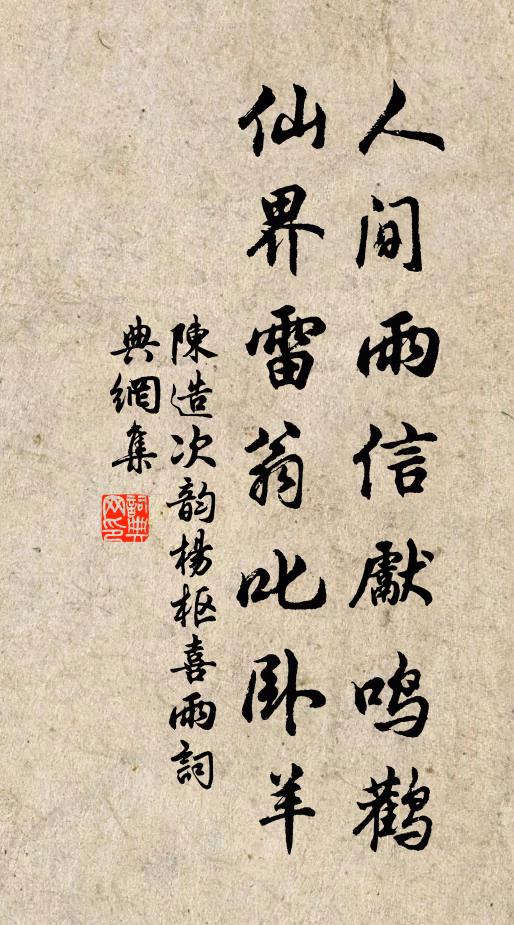 人间雨信献鸣鹳
仙界雷翁叱卧羊
陳造次韵楊枢喜雨詞
典網集
詞典网印